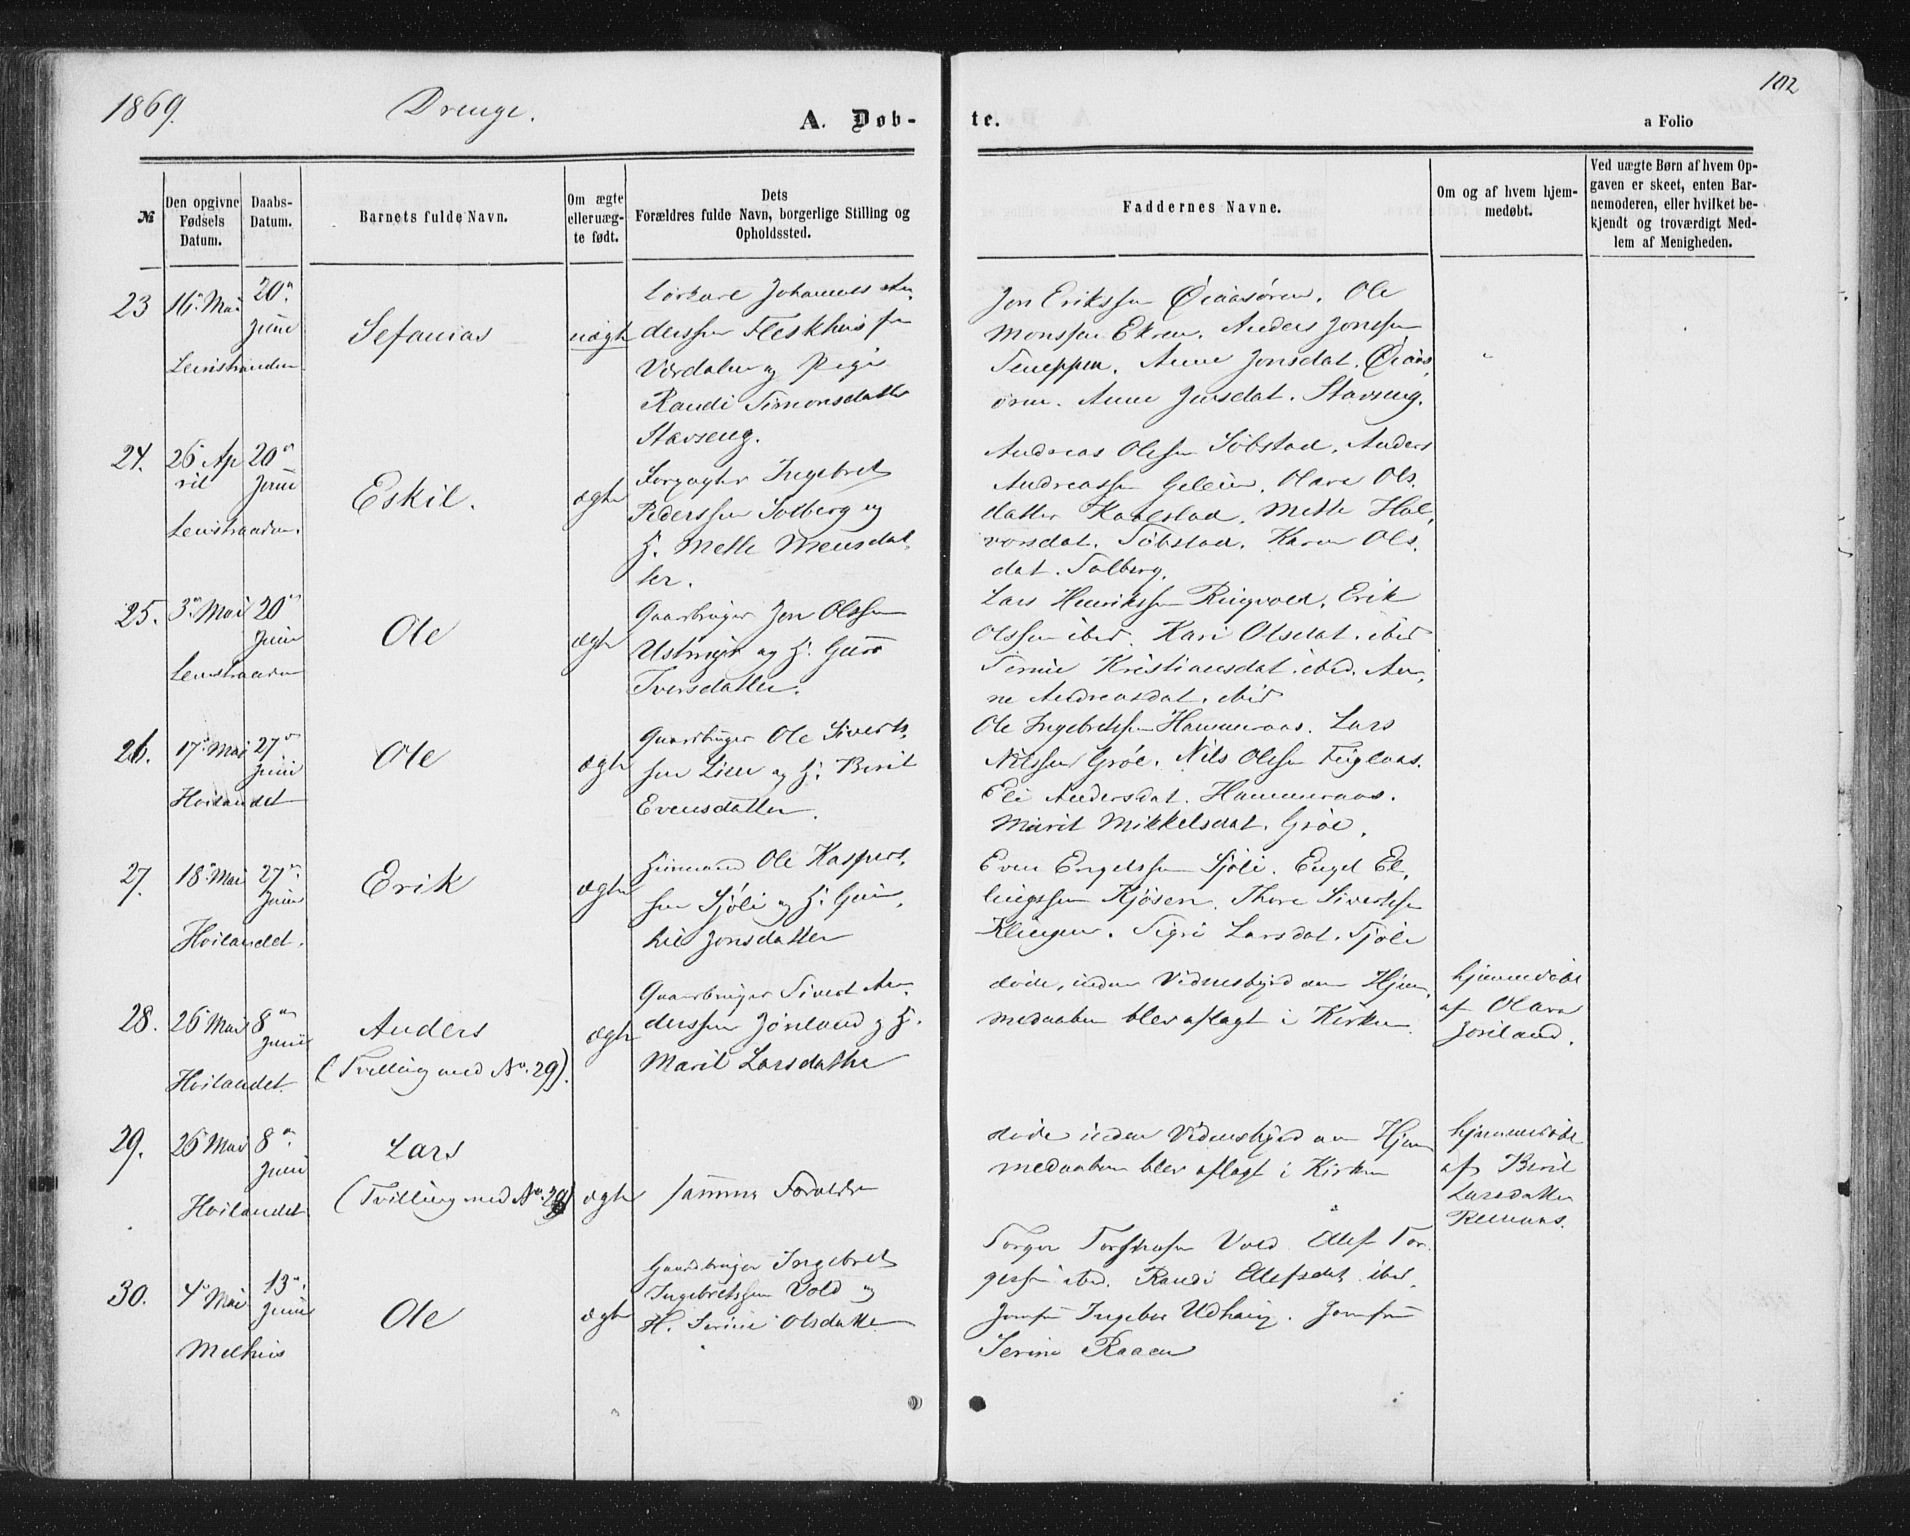 1869.
Drenge.
A. Døb-
te.
a Folio
102
№
Den opgivne
Fødsels
Datum.
Daabs-
Datum.
Barnets fulde Navn.
Om ægte
eller uæg-
te født.
Dets
Forældres fulde Navn, borgerlige Stilling og
Opholdssted.
Faddernes Navne.
Om og af hvem hjem-
medøbt.
Ved uægte Børn af hvem Op-
gaven er skeet, enten Bar-
nemoderen, eller hvilket be-
kjendt og troværdigt Med-
lem af Menigheden.
23
16 Mai
Leinstranden
20
Juni
Sefanias
uægte
Johannes An-
derssen Fleskhus fra
Værdalen og Pige
Randi Simonsdatter
Stavseng.
Jon Erikssen Øiaasøren. Ole
Monssen Ekren. Anders Jonssen
Anne Jonsdat. Øiaas-
øren. Anne Jensdat. Stavseng.
24.
26 Ap
ril
Leinstranden.
20
Juni
Eskil.
ægte
Forpagter Ingebret
Pederssen Solberg og
H. Mette Monsdat-
ter.
Andreas Olsen Søbstad. Anders
Andreassen Olava Ols-
datter Kaalstad. Mette Hal-
vorsdat. Søbstad. Karen Ols-
dat. Solberg.
25.
3 Mai
Leinstranden
20
Juni
Ole
ægte
Gaardbruger Jon Olssen
Ustmyr og H. Guro
Iversdatter.
Lars Henrikssen Ringvold. Erik
Olssen ibid. Kari Olsdat. ibid
Kristiansdat. ibid. An-
ne Andreasdat. ibid
26.
17 Mai
Høilandet
27
Juni
Ole
ægte
Gaardbruger Ole Siverts-
sen Lien og H. Berit
Evensdatter.
Ole Ingebretssen Hammeraas. Lars
Nilssen Grøe. Nils Olsen Fuglaas.
Eli Andersdat. Hammeraas.
Marit Mikkelsdat. Grøe.
27.
18 Mai
Høilandet.
27
Juni
Erik
ægte
Huusmand Ole Kaspers-
sen Sjøli og H. Gun-
hil Jonsdatter
Even Engelssen Sjøli. Engel El-
lingssen Kjøsen. Thore Sivertsen
Klingen. Sigri Larsdat. Sjøli
28.
26 Mai
Høilandet.
8
Juni
Anders
(Tvilling med No. 29).
ægte
Gaardbruger Sivert An-
derssen Joriland og H.
Marit Larsdatter
døde, inden Vidnesbyrd om Hjem-
medaaben blev aflagt i Kirken
hjemmedøbt
af Olava
Joriland.
29.
26 Mai
Høilandet
8
Juni
Lars
(Tvilling med No. 28)
ægte
samme Forældre
døde inden Vidnesbyrd om Hjem
medaaben blev aflagt i Kirken
hjemmedøbt
af Berit
Larsdatter
30.
4 Mai
Melhus
13
Juni
Ole
ægte
Gaardbruger Ingebret
Ingebretssen Vold og
H. Serine Olsdatter
Torger Vold. Ellef Tor-
gersen ibid. Randi Ellefsdat. ibid.
Jomfr Ingebor Udhaug. Jomfru
Serine Raaen